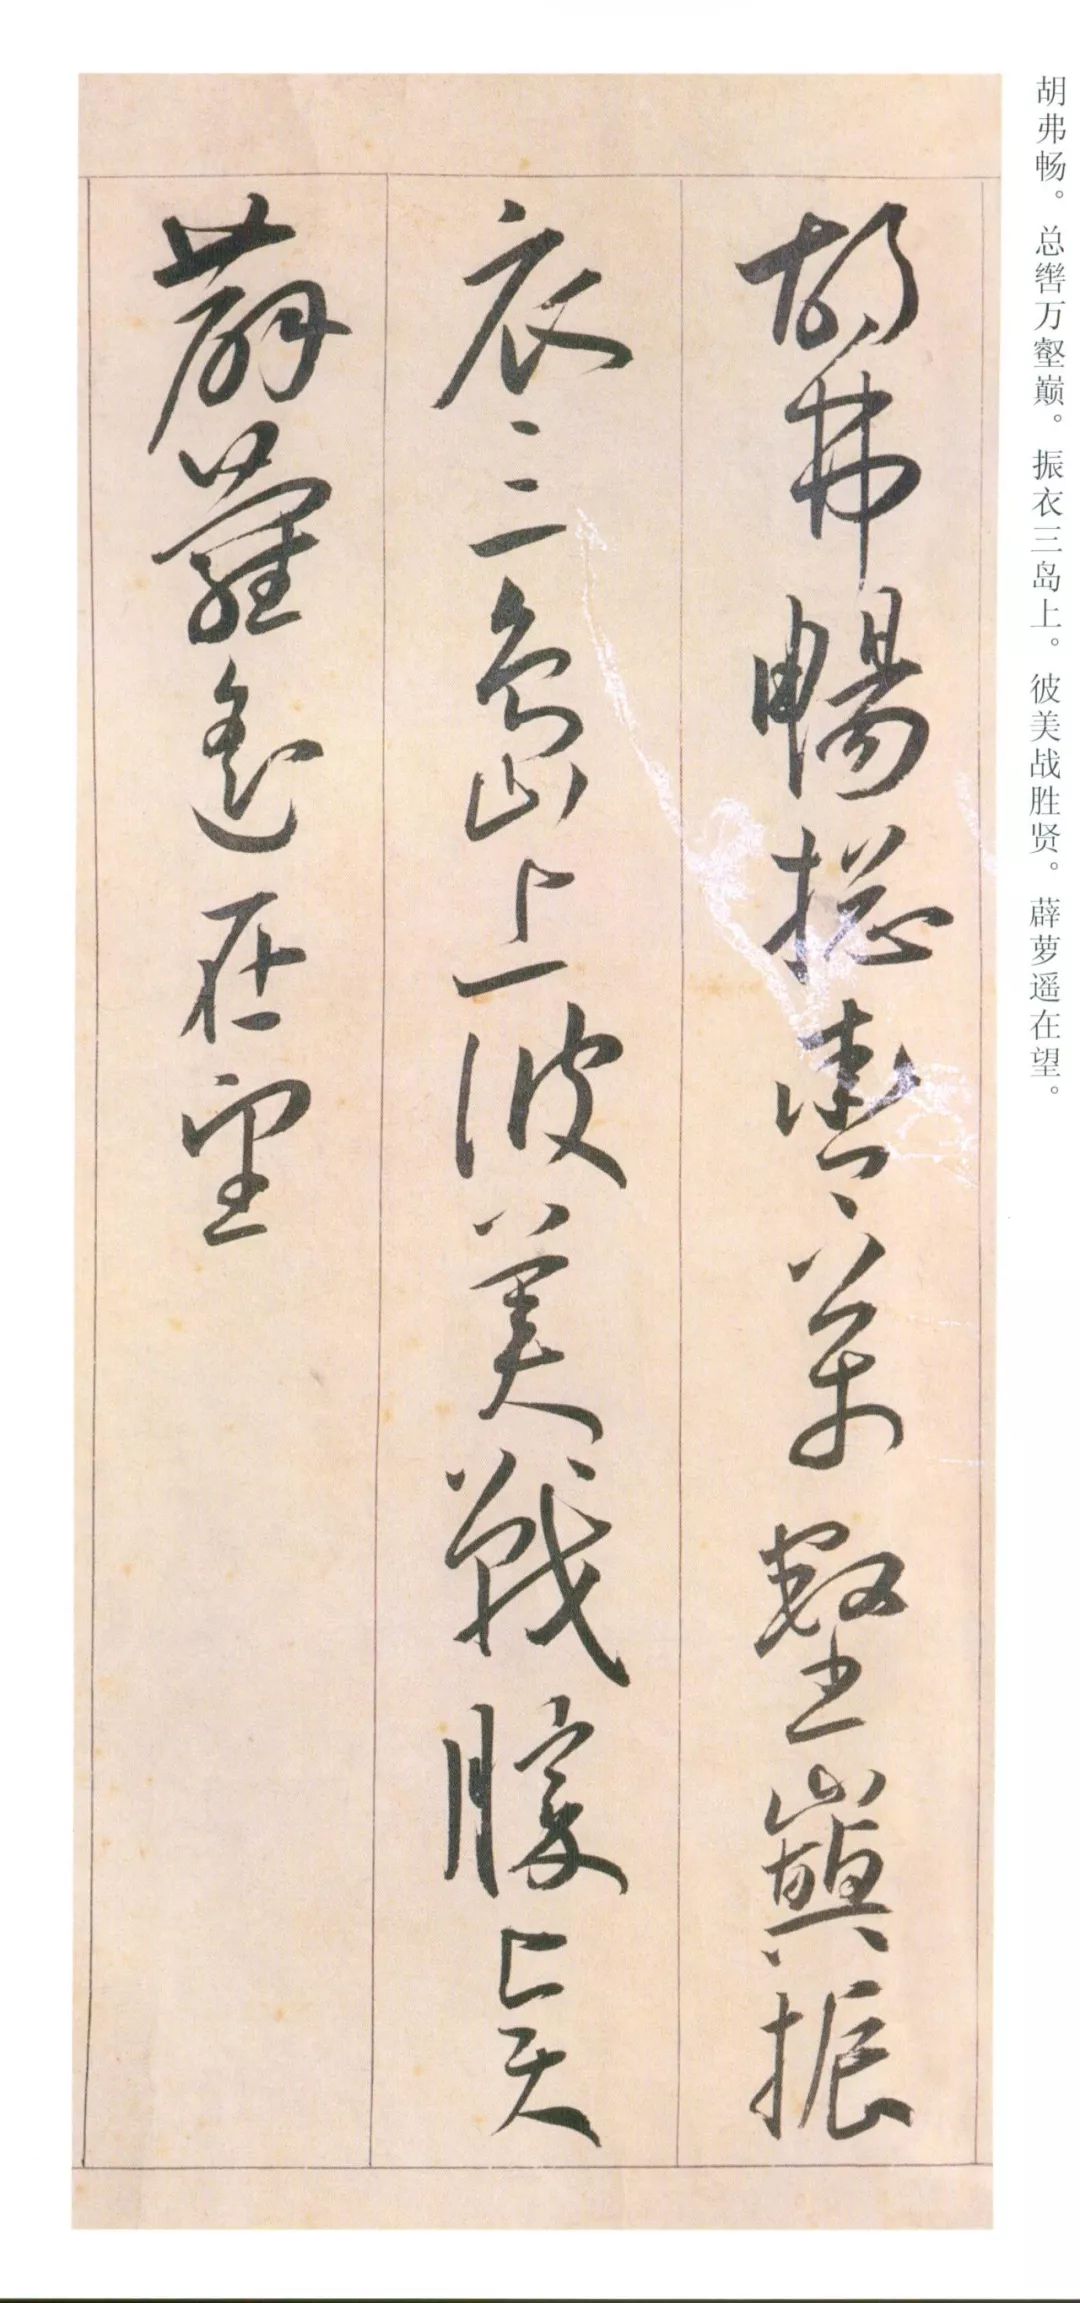 胡弗畅。总辔万壑巅。振衣三岛上。彼美战胜贤。薜萝遥在望。
胡弗暢捴轡万壑巔振
衣三島上彼美戰勝贤
薜蘿遙在望